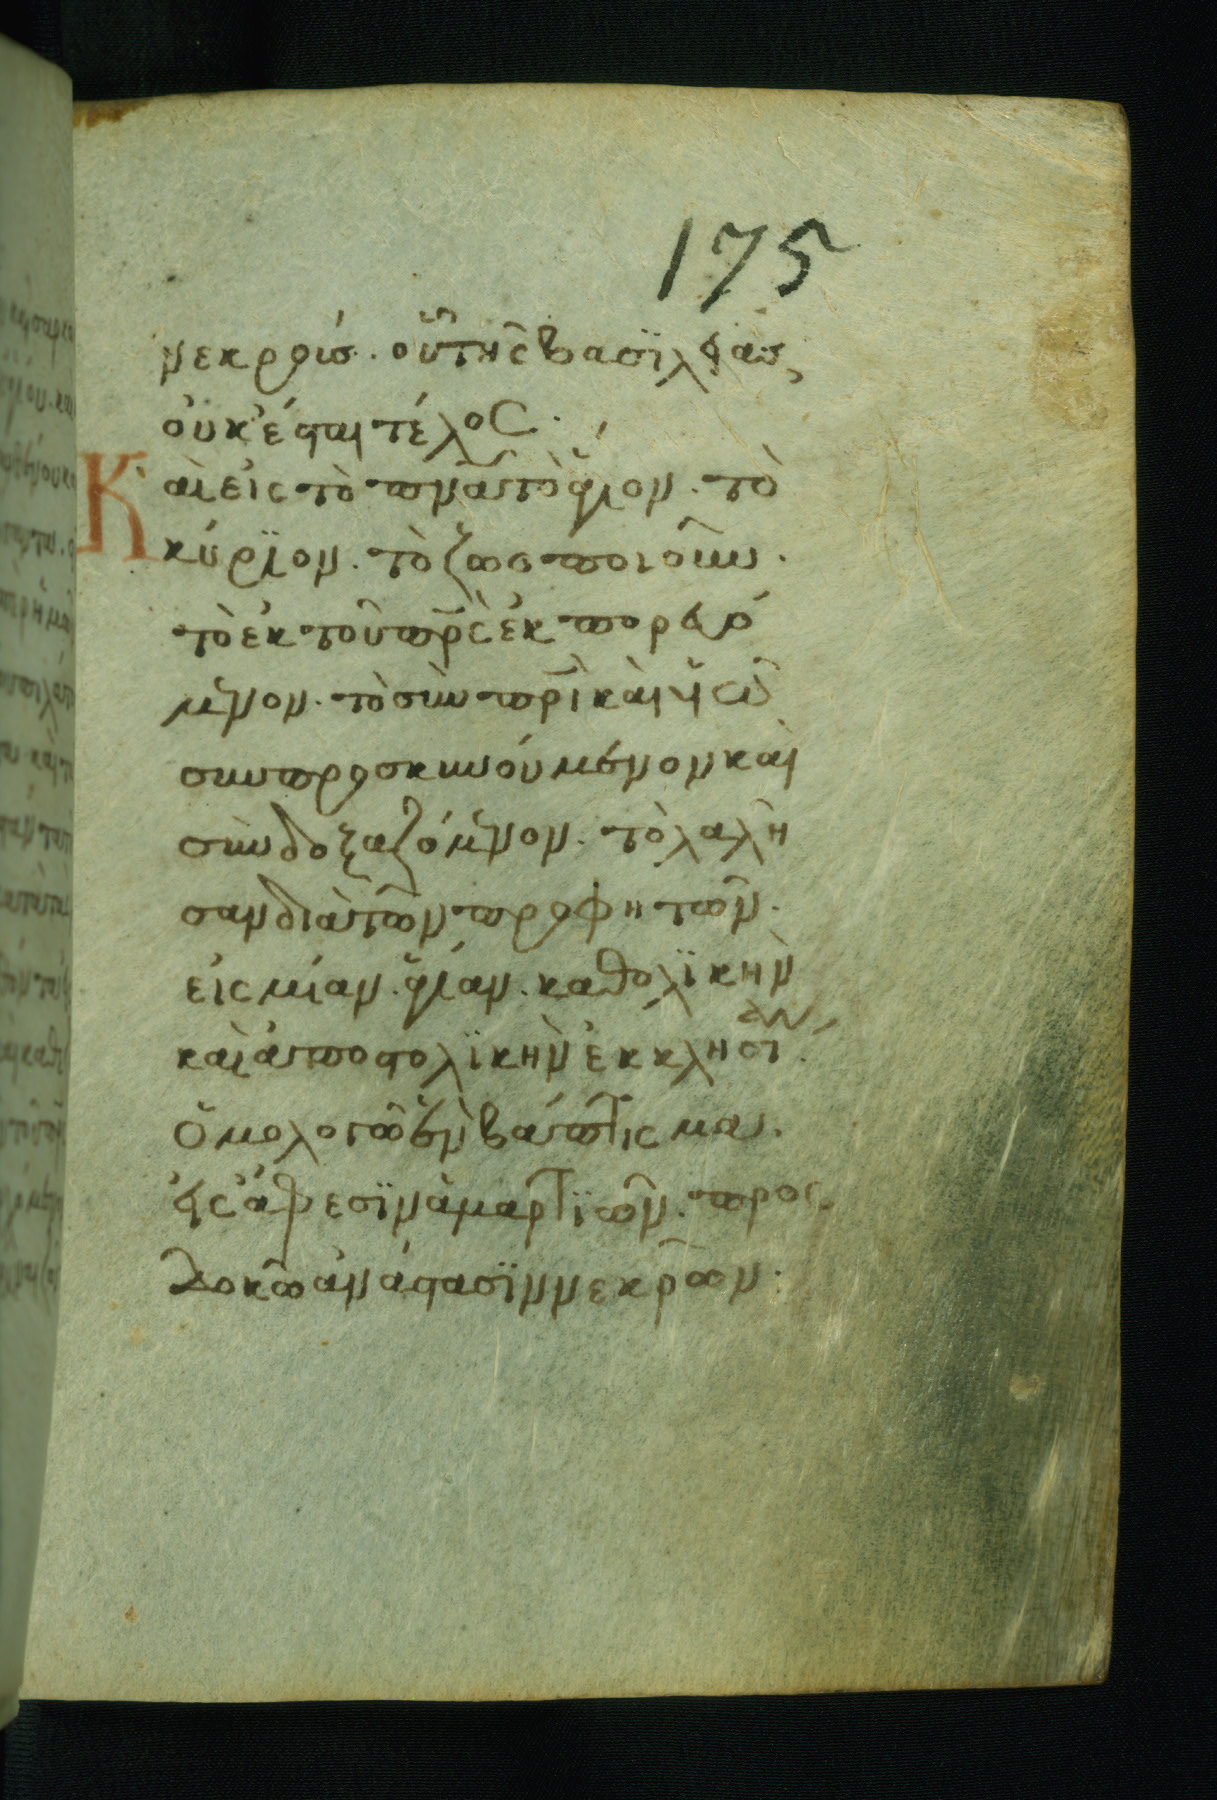 175
νεκρούς. οὗ τῆς βασϊλείας
οὐκ ἔσται τέλος.
Καὶ εἰς τὸ πνα τὸ ἅγιον. τὸ
κύρϊον. τὸ ζωοποιοῦν.
τὸ ἐκ τοῦ πρς ἐκπορευό
μενον. τὸ σὺν πρὶ καὶ υἱῶ
συνπροσκυνούμενον καὶ
σὺνδοξαζόμενον. τὸ λαλῆ
σαν διὰ τῶν προφητῶν.
εἰς μίαν. ἁγίαν. καθολϊκὴν
καὶ ἀποστολϊκὴν ἐκκλησίαν.
Ὁμολογῶ ἓν βάπτισμα.
εἰς ἄφεσϊν ἁμαρτϊῶν. προσ
δοκῶ ἀνάστασϊν νεκρῶν.